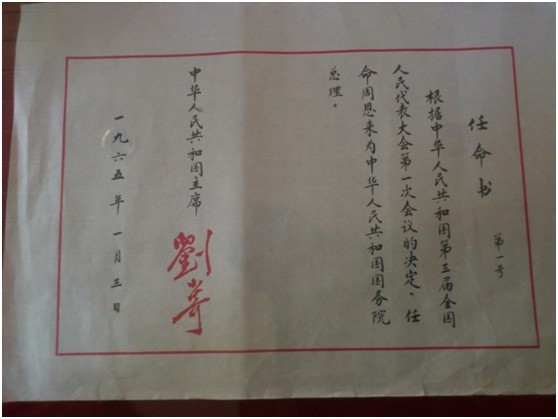 任命书
第一号
根据中华人民共和国第三届全国
人民代表大会第一次会议的决定，任
命周恩来为中华人民共和国国务院
总理。
中华人民共和国主席
劉少奇
一九六五年一月三日